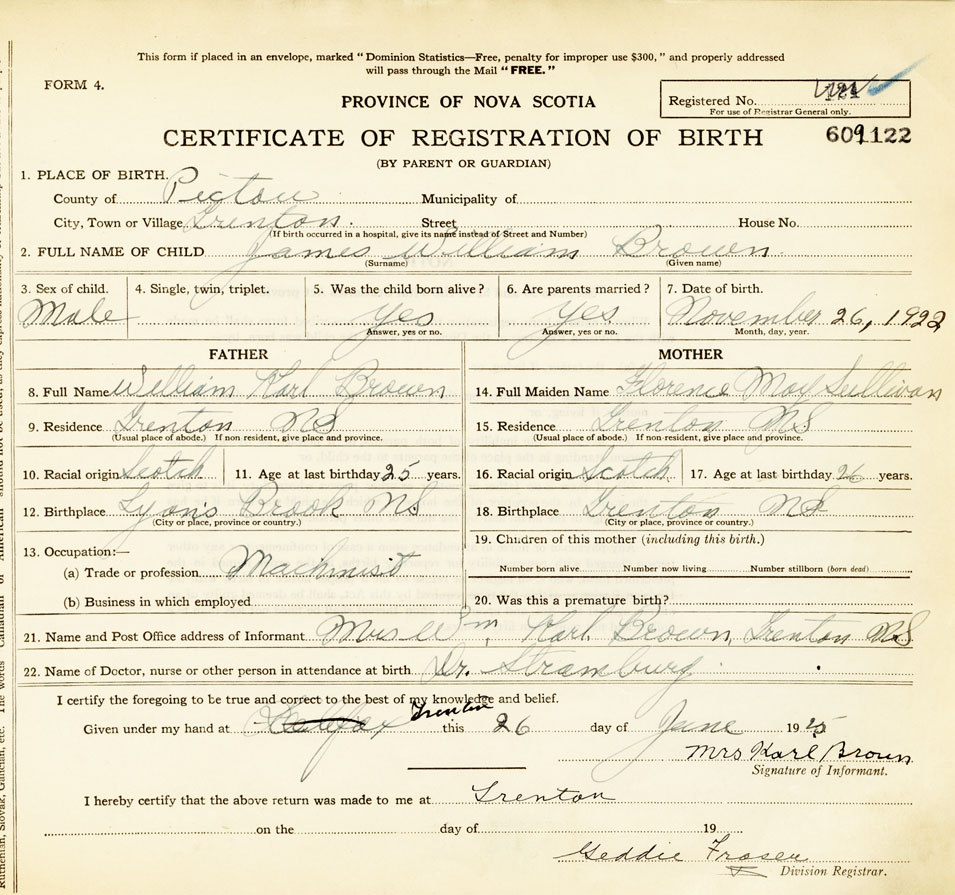 This form if placed in an envelope, marked "Dominion Statistics—Free, penalty for improper use $300," and properly addressed
will pass through the Mail "FREE."
FORM 4.
PROVINCE OF NOVA SCOTIA
Registered No.
For use of Registrar General only.
CERTIFICATE OF REGISTRATION OF BIRTH
609122
(BY PARENT OR GUARDIAN)
1. PLACE OF BIRTH.
County of Pictou Municipality of
City, Town or Village Trenton. Street House No.
(If birth occurred in a hospital, give its name instead of Street and Number)
2. FULL NAME OF CHILD James William Brown.
(Surname) (Given name)
3. Sex of child. 4. Single, twin, triplet. 5. Was the child born alive? 6. Are parents married? 7. Date of birth.
Male yes yes November 26, 1922
Answer, yes or no. Answer, yes or no. Month, day, year.
FATHER MOTHER
8. Full Name William Karl Brown 14. Full Maiden Name Florence May Sullivan
9. Residence Trenton NS 15. Residence Trenton NS
(Usual place of abode.) If non resident, give place and province. (Usual place of abode.) If non-resident, give place and province.
10. Racial origin Scotch 11. Age at last birthday 25 years. 16. Racial origin Scotch 17. Age at last birthday 26 years.
12. Birthplace Lyons Brook NS 18. Birthplace Trenton NS
(City or place, province or country.) (City or place, province or country.)
13. Occupation:— 19. Children of this mother (including this birth.)
(a) Trade or profession Machinist Number born alive Number now living Number stillborn (born dead)
(b) Business in which employed 20. Was this a premature birth?
21. Name and Post Office address of Informant Mrs Wm. Karl Brown, Trenton NS
22. Name of Doctor, nurse or other person in attendance at birth Dr. Stramburg.
I certify the foregoing to be true and correct to the best of my knowledge and belief.
Given under my hand at Halifax Trenton this 26 day of June 1925
Mrs Karl Brown
Signature of Informant.
I hereby certify that the above return was made to me at Trenton
on the day of 19
Geddie Fraser
Division Registrar.